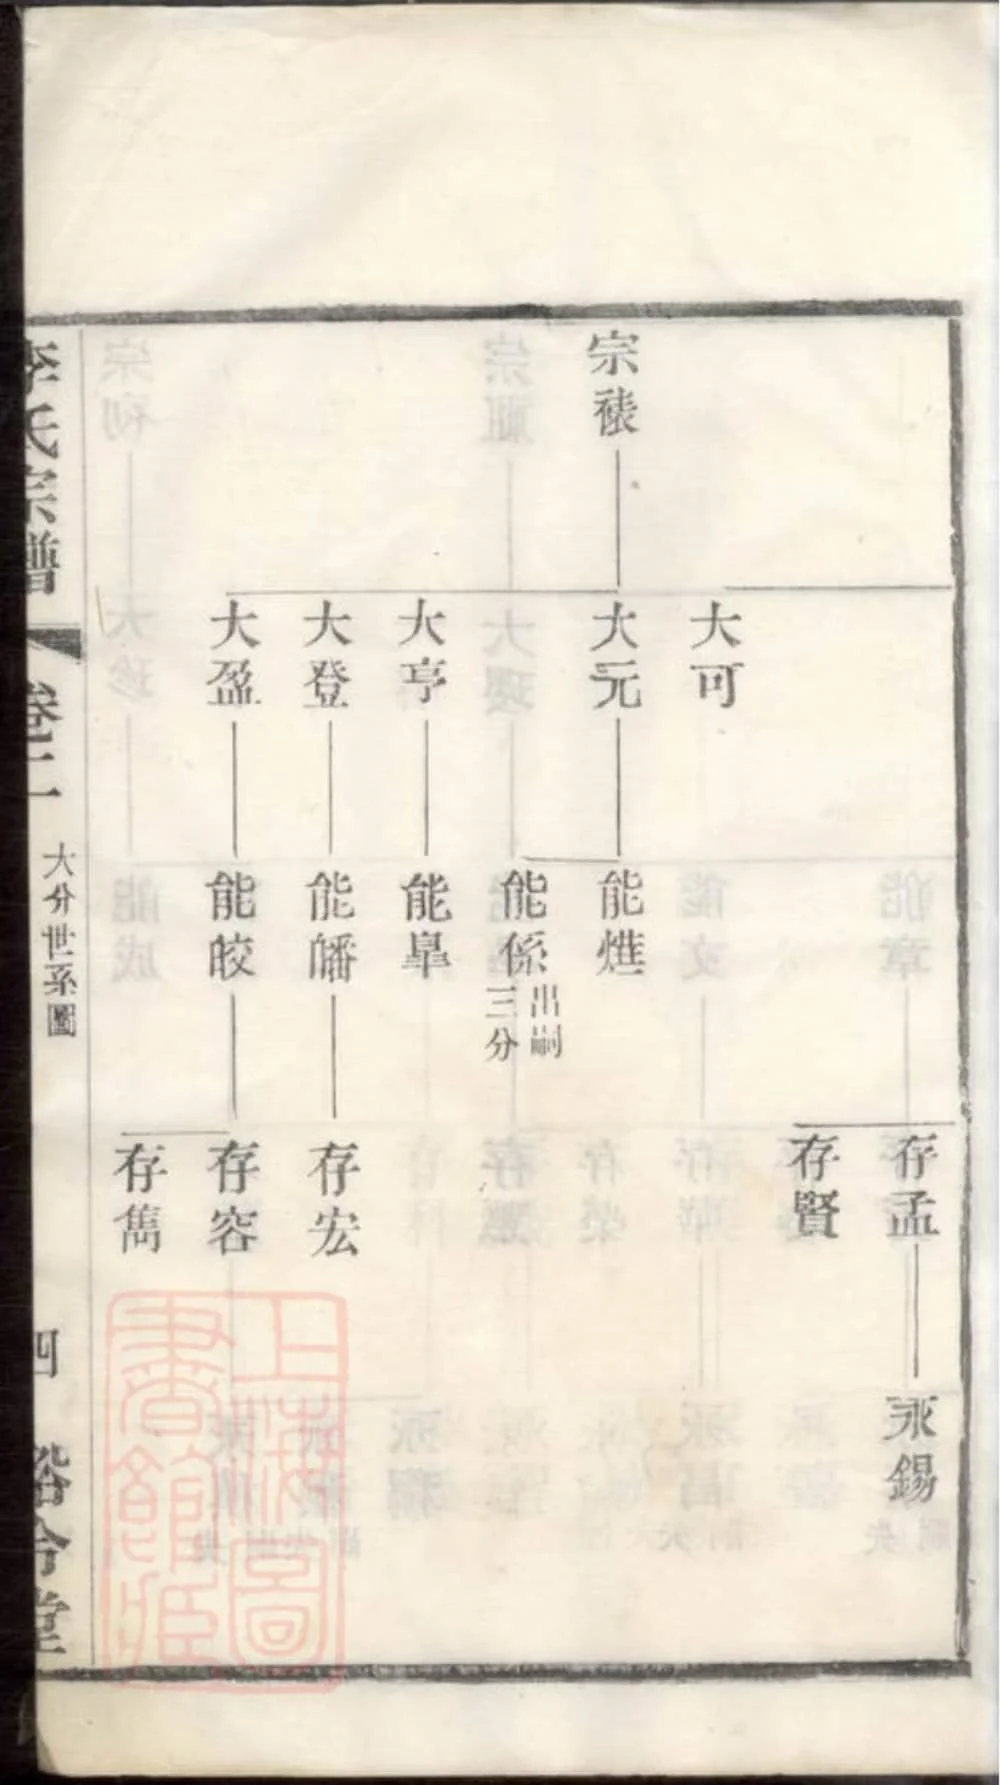 宗
大可
大元
大亨
大登
大盈
能燋
能係
出嗣
三分
能皐
能皤
能皎
存孟
存賢
存宏
存容
存雋
永錫
李氏宗譜
卷二
大分世系圖
四
上海圖書館藏